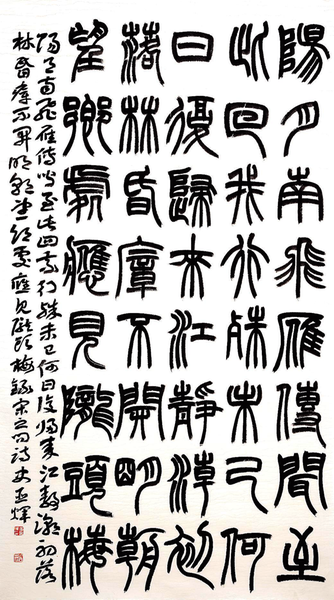 陽月南飛雁傳聞至
此回我行殊未已何
日復歸來江靜潮初
落林昏瘴不開明朝
望鄉處應見隴頭梅
陽月南飛雁傳聞至此回我行殊未已何日復歸來江靜潮初落
林昏瘴不開明朝望鄉處應見隴頭梅錄宋之問詩輝